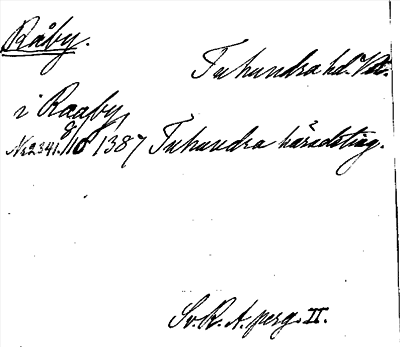 Råby.
Tuhundra hd. Vstm.
i Raaby
No 2341. 8/10 1387 Tuhundra häradsting.
Sv. R. A. perg. II.